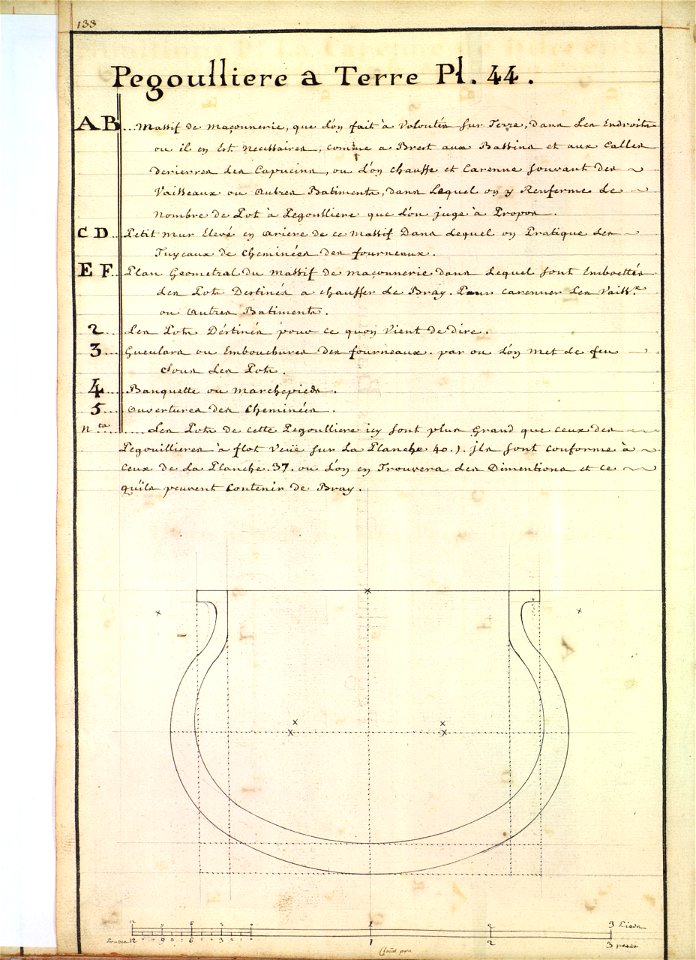 133
Pegoulliere a Terre Pl. 44.
A B ... Massif de maçonnerie, que l'on fait à Volontés sur Terre, dans les Endroits
ou il en Est Necessaires, comme a Brest aux Bassins et aux Calles
derieres les Capucins, ou l'on chauffe et Carenne souvant des
Vaisseaux ou autres Batiments, dans lequel on y Renferme le
Nombre de Pot à Pegoulliere que l'on juge à Propos.
C D ... Petit mur Elevé en ariere de ce Massif Dans lequel on Pratique les
Tuyeaux de Cheminées des fourneaux.
E F ... Plan Geometral du Massif de maçonnerie dans lequel sont Emboettés
les Pots Destinés a chauffer le Bray. Pour carenner les Vaiss.x
ou autres Batiments.
2 ... Les Pots Déstinés pour ce qu'on Vient de dire.
3 ... Gueulars ou Embouchures des fourneaux. par ou l'on met le feu
sous les Pots.
4 ... Banquette ou marchepieds.
5 ... ouvertures des Cheminées.
n.ta ... Les Pots de cette Pegoulliere icy sont plus Grand que ceux des
Pegouillieres à flot Veüe sur La Planche 40.). jls sont conforme à
Ceux de La Planche. 37. ou l'on en Trouvera les Dimentions et ce
qu'ils peuvent Contenir de Bray.
1 2 3 Pieds
12 9 6 3 1 2 3